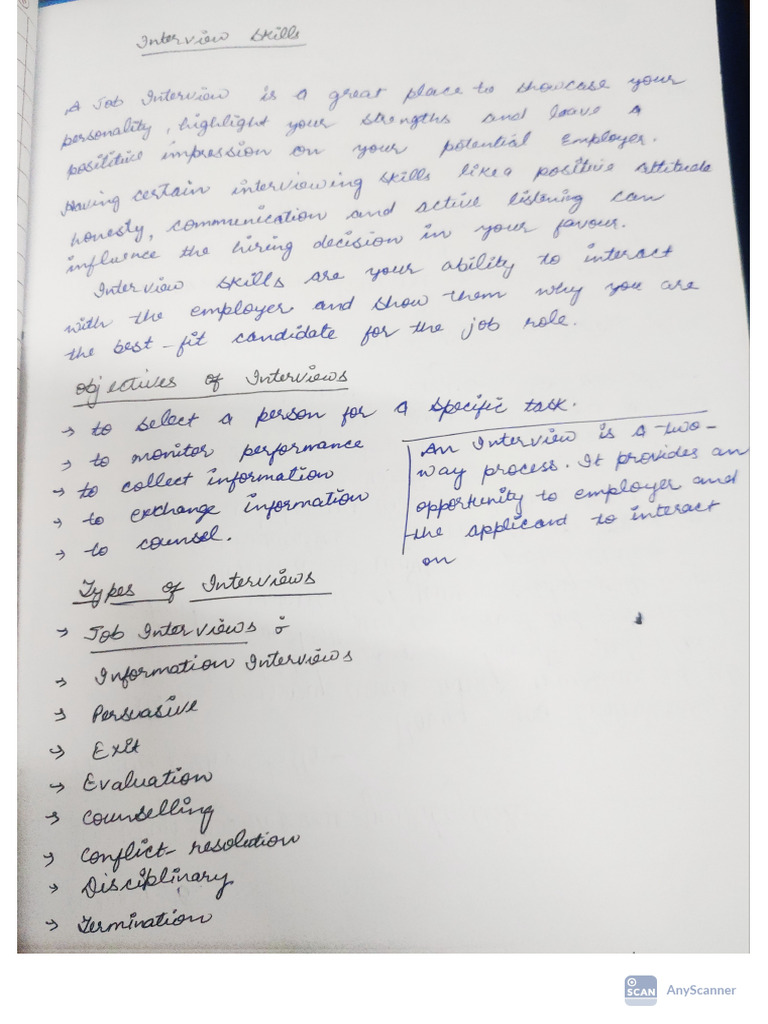 Interview Skills
A Job Interview is a great place to showcase your
personality, highlight your strengths and leave a
posititive impression on your potential Employer.
Having certain interviewing skills like a positive attitude
honesty, communication and active listening can
influence the hiring decision in your favour.
Interview skills are your ability to interact
with the employer and show them why you are
the best-fit candidate for the job role.
Objectives of Interviews
→ to select a person for a specific task.
→ to monitor performance
→ to collect information
→ to exchange information
→ to counsel.
An Interview is a two-
way process. It provides an
opportunity to employer and
the applicant to interact
on
Types of Interviews
→ Job Interviews :-
→ Information Interviews
→ Persuasive
→ Exit
→ Evaluation
→ Counselling
→ Conflict-resolution
→ Disciplinary
→ Termination
SCAN AnyScanner